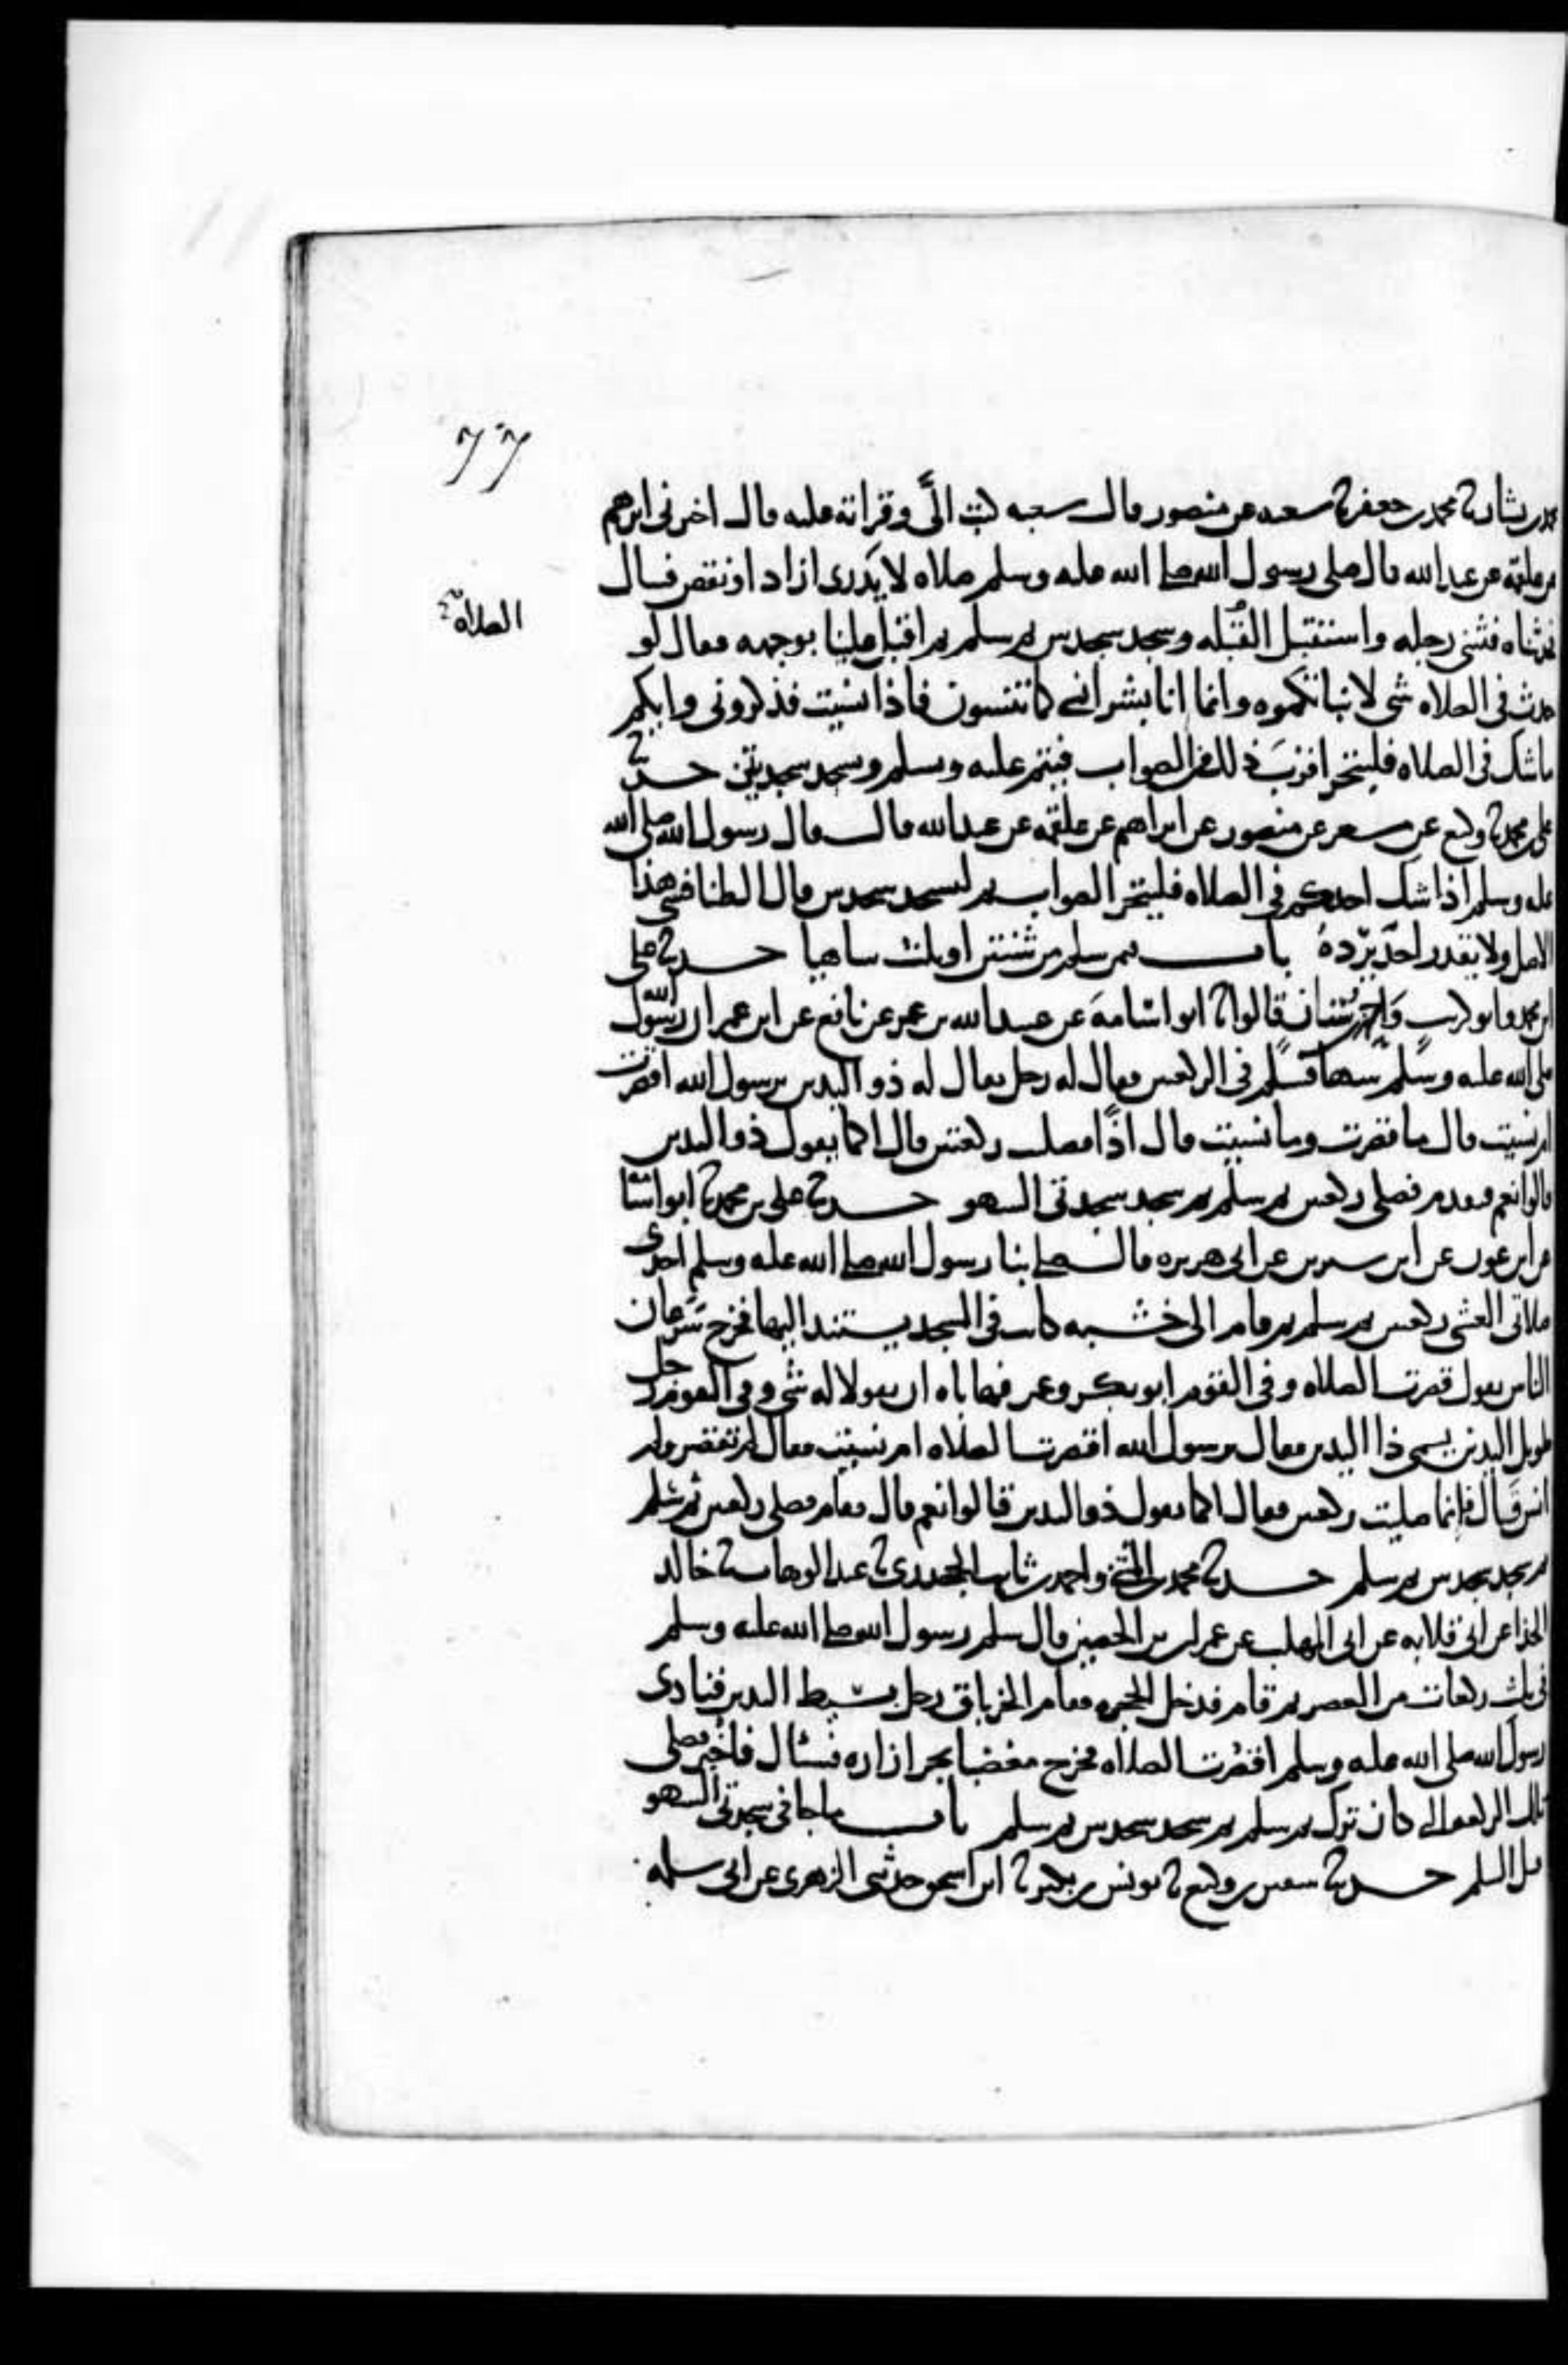 77
محمد بن بشار ثنا محمد بن جعفر ثنا شعبه عن منصور قال شعبه كتب الىّ وقراته عليه قال اخبرنى ابرهيم
عن علقمه عن عبد الله قال صلى رسول الله صلى الله عليه وسلم صلاه لا يَدرى ازاد او نقص فسال
الصلاة
فحدثناه فثنى رجله واستقبل القبله وسجد سجدتين ثم سلم ثم اقبل علينا بوجهه فقال لو
حدث فى الصلاه شى لانباتكموه وانما انا بشر انسى كما تنسون فاذا نسيت فذكرونى وايكم
ما شك فى الصلاه فليتحر اقربَ ذلك من الصواب فيتم عليه ويسلم ويسجد سجدتين حدثنا
على بن محمد ثنا وكيع عن مسعر عن منصور عن ابراهيم عن علقمه عن عبد الله قال قال رسول الله صلى الله
عليه وسلم اذا شك احدكم فى الصلاه فليتحر الصواب ثم ليسجد سجدتين قال الطنافسى هذا
الاصل ولا يقدر احدٌ يردّهُ باب فيمن سلم من ثنتين او ثلث ساهيا حدثنا على
ابن محمد وابو كريب وَاحمد بن سنان قالوا ثنا ابو اسامهَ عن عبيد الله بن عمر عن نافع عن ابن عمر ان رسول الله
صلى الله عليه وسلم سها فسلم فى الركعتين فقال له رجل يقال له ذو اليدين يرسول الله اقصرت
ام نسيت قال ما قصرت وما نسيت قال اذًا فصليت ركعتين قال اكما يقول ذو اليدين
قالوا نعم فتقدم فصلى ركعتين ثم سلم ثم سجد سجدتى السهو حدثنا على بن محمد ثنا ابو اسامه
عن ابن عون عن ابن سيرين عن ابى هريره قال صلى بنا رسول الله صلى الله عليه وسلم احدى
صلاتى العشى ركعتين ثم سلم ثم قام الى خشبه كانت فى المسجد يستند اليها فخرج سَرَعان
الناس يقول قصرت الصلاه وفى القوم ابو بكر وعمر فهاباه ان يقولا له شى وفى القوم رجل
طويل اليدين يسمى ذا اليدين فقال يرسول الله اقصرت الصلاه ام نسيت فقال لم تقصر ولم
انس قَال فانما صليت ركعتين فقال اكما يقول ذو اليدين قالوا نعم قال فقام فصلى ركعتين ثم سلم
ثم سجد سجدتين ثم سلم حدثنا محمد بن المثنى واحمد بن ثابت الجحدرى ثنا عبد الوهاب ثنا خالد
الحذا عن ابى قلابه عن ابى المهلب عن عمران بن الحصين قال سلم رسول الله صلى الله عليه وسلم
فى ثلث ركعات من العصر ثم قام فدخل الحجره فقام الخرباق رجل بسيط اليدين فنادى
رسولَ الله صلى الله عليه وسلم اقصُرت الصلاه فخرج مغضبا يجر ازاره فسال فاخبر فصلى
تلك الركعه التى كان ترك ثم سلم ثم سجد سجدتين ثم سلم باب ما جا فى سجدتى السهو
قبل السلم حدثنا سفين بن وكيع ثنا يونس بن بكير ثنا ابن اسحق حدثنى الزهرى عن ابى سلمه